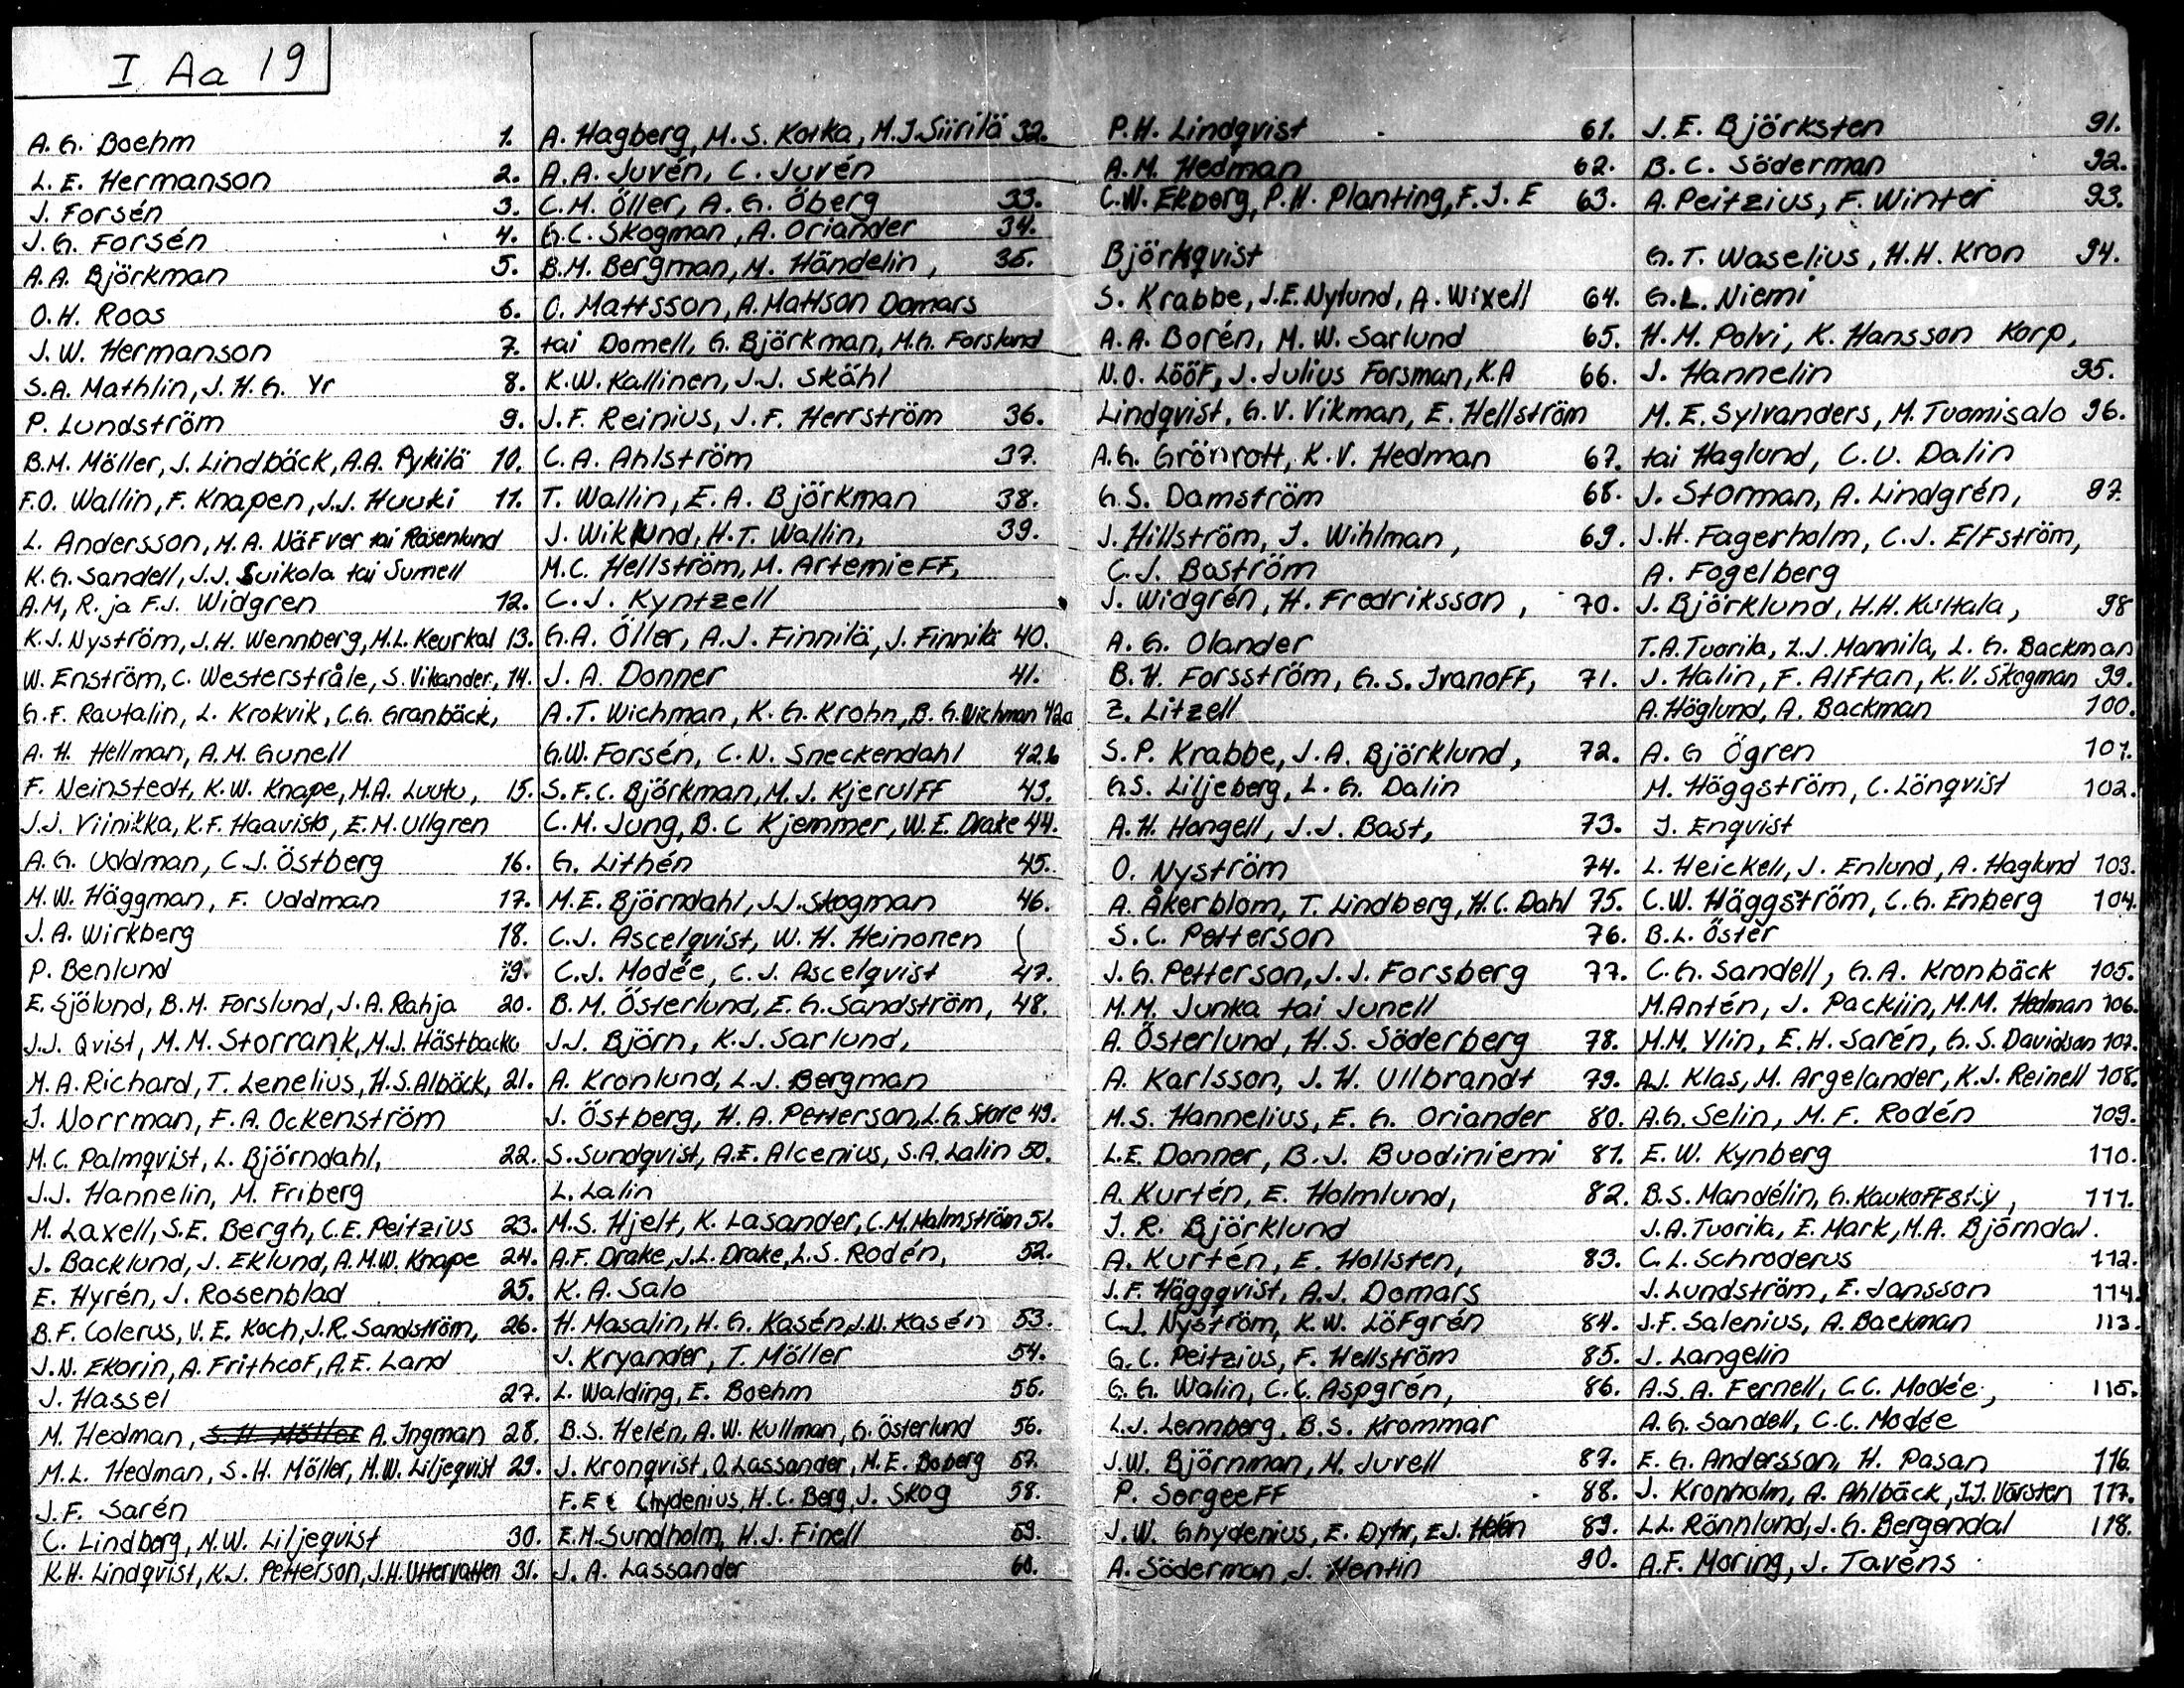 I Aa 19
A. G. Boehm 1.
L. E. Hermanson 2.
J. Forsén 3.
J. G. Forsén 4.
A. A. Björkman 5.
O. H. Roos 6.
J. W. Hermanson 7.
S. A. Mathlin, J. H. G. Yr 8.
P. Lundström 9.
B. M. Möller, J. Lindbäck, A.A. Pykilä 10.
F. O. Wallin, F. Knapen, J.J. Huuki 11.
L. Andersson, M. A. Näfver tai Rosenlund
K. G. Sandell, J.J. Suikola tai Sumell
A. M, R. ja F. J. Widgren 12.
K. J. Nyström, J. H. Wennberg, M.L. Keurkal 13.
W. Enström, C. Westerstråle, S. Vikander, 14.
G. F. Rautalin, L. Krokvik, C.G. Granbäck,
A. H. Hellman, A. M. Gunell
F. Neinstedt, K.W. Knape, M.A. Luutu, 15.
J. J. Viinikka, K.F. Haavisto, E. M. Ullgren
A. G. Uddman, C. J. Östberg 16.
M. W. Häggman, F. Uddman 17.
J. A. Wirkberg 18.
P. Benlund 19.
E. Sjölund, B. M. Forslund, J. A. Rahja 20.
J. J. Qvist, M. M. Storrank, M. J. Hästbacka
M. A. Richard, T. Lenelius, H. S. Albäck, 21.
J. Norrman, F. A. Ockenström
M. C. Palmqvist, L. Björndahl, 22.
J. J. Hannelin, M. Friberg
M. Laxell, S. E. Bergh, C. E. Peitzius 23.
J. Backlund, J. Eklund, A. M.W. Knape 24.
E. Hyrén, J. Rosenblad 25.
B. F. Colerus, V. E. Koch, J. R. Sandström, 26.
J. N. Ekorin, A. Frithcof, A. E. Land
J. Hassel 27.
M. Hedman, S. H. Möller A. Ingman 28.
M. L. Hedman, S. H. Möller, M. W. Liljeqvist 29.
J. F. Sarén
C. Lindberg, N. W. Liljeqvist 30.
K. H. Lindqvist, K.J. Petterson, J. H. Uttervatten 31.
A. Hagberg, M. S. Korka, M. J. Siirilä 32.
A. A. Juvén, C. Juvén
C. M. Öller, A. G. Öberg 33.
G. C. Skogman, A. Oriander 34.
B. M. Bergman, M. Händelin, 35.
O. Mattsson, A. Mattson Domars
tai Domell, G. Björkman, M. G. Forslund
K. W. Kallinen, J. J. Skåhl
J. F. Reinius, J. F. Herrström 36.
C. A. Ahlström 37.
T. Wallin, E. A. Björkman 38.
J. Wiklund, H. T. Wallin, 39.
M. C. Hellström, M. Artemieff,
C. J. Kyntzell
G. A. Öller, A. J. Finnilä, J. Finnilä 40.
J. A. Donner 41.
A. T. Wichman, K. G. Krohn, B. G. Wichman 42a
G. W. Forsén, C. N. Sneckendahl 42.b
S. F. C. Björkman, M. J. Kjerulff 43.
C. M. Jung, B. C Kjemmer, W. E. Drake 44.
G. Lithén 45.
M. E. Björndahl, J. J. Skogman 46.
C. J. Ascelqvist, W. H. Heinonen
C. J. Modée, C. J. Ascelqvist 47.
B. M. Österlund, E. G. Sandström, 48.
J. J. Björn, K. J. Sarlund,
A. Kronlund, L. J. Bergman
J. Östberg, H. A. Petterson, L. G. Store 49.
S. Sundqvist, A. E. Alcenius, S. A. Lalin 50.
L. Lalin
M. S. Hjelt, K. Lasander, C. M. Malmström 51.
A. F. Drake, J. L. Drake, L. S. Rodén, 52.
K. A. Salo
H. Masalin, H. G. Kasén, J. N. Kasén 53.
J. Kryander, T. Möller 54.
L. Walding, E. Boehm 55.
B. S. Helén, A. W. Kullman, G. Österlund 56.
J. Kronqvist, O. Lassander, M. E. Boberg 57.
F. E Chydenius, H. C. Berg, J. Skog 58.
E. M. Sundholm, H. J. Finell 59.
J. A. Lassander 60.
P. H. Lindqvist 61.
A. M. Hedman 62.
C. W. Ekborg, P. H. Planting, F. J. E 63.
Björkqvist
S. Krabbe, J. E. Nylund, A. Wixell 64.
A. A. Borén, M. W. Sarlund 65.
N. O. Lööf, J. Julius Forsman, K. A 66.
Lindqvist, G. V. Vikman, E. Hellström
A. G. Grönrott, K. V. Hedman 67.
G. S. Damström 68.
J. Hillström, J. Wihlman, 69.
C. J. Boström
J. Widgrén, H. Fredriksson, 70.
A. G. Olander
B. H. Forsström, G. S. Ivanoff, 71.
Z. Litzell
S. P. Krabbe, J. A. Björklund, 72.
G. S. Liljeberg, L. G. Dalin
A. H. Hongell, J. J. Bast, 73.
O. Nyström 74.
A. Åkerblom, T. Lindberg, H. C. Dahl 75.
S. C. Petterson 76.
J. G. Petterson, J. J. Forsberg 77.
M. M. Junka tai Junell
A. Österlund, H. S. Söderberg 78.
A. Karlsson, J. H. Ullbrandt 79.
M. S. Hannelius, E. G. Oriander 80.
L. E. Donner, B. J. Buodiniemi 81.
A. Kurtén, E. Holmlund, 82.
J. R. Björklund
A. Kurtén, E. Hollsten, 83.
J. F. Häggqvist, A. J. Domars
C. J. Nyström, K. W. Löfgrén 84.
G. C. Peitzius, F. Hellström 85.
G. G. Walin, C. C. Aspgrén, 86.
L. J. Lennberg, B. S. Krommar
J. W. Björnman, M. Juvell 87.
P. Sorgeeff 88.
J. W. Ghydenius, E. Dyhr, E J. Helén 89.
A. Söderman, J. Hentin 90.
J. E. Björksten 91.
B. C. Söderman 92.
A. Peitzius, F. Winter 93.
G. T. Waselius, H. H. Kron 94.
G. L. Niemi
H. M. Polvi, K. Hansson Korp,
J. Hannelin 95.
M. E. Sylvanders, M. Tuomisalo 96.
tai Haglund, C. U. Dalin
J. Storman, A. Lindgrén, 97.
J. H. Fagerholm, C. J. Elfström,
A. Fogelberg
J. Björklund, H. H. Kultala, 98
T. A. Tuorila, Z. J. Mannila, L. G. Backman
J. Halin, F. Alftan, K. V. Skogman 99.
A. Höglund, A. Backman 100.
A. G Ögren 101.
M. Häggström, C. Lönqvist 102.
J. Enqvist
L. Heickell, J. Enlund, A. Haglund 103.
C. W. Häggström, C. G. Enberg 104.
B. L. Öster
C. G. Sandell, G. A. Kronbäck 105.
M. Antén, J. Packiin, M. M. Hedman 106.
M. M. Ylin, E. H. Sarén, G. S. Davidson 107.
A. J. Klas, M. Argelander, K. J. Reinell 108.
A. G. Selin, M. F. Rodén 109.
E. W. Kynberg 110.
B. S. Mandélin, G. 111.
J. A. Tuorila, E. Mark, M. A. Björndal.
C. L. Schroderus 112.
J. Lundström, E. Jansson 114.
J. F. Salenius, A. Backman 113.
J. Langelin
A. S. A. Fernell, C. C. Modée, 115.
A. G. Sandell, C. C. Modée
E. G. Andersson, H. Pasan 116.
J. Kronholm, A. Ahlbäck, J. J. 117.
L. L. Rönnlund, J. G. Bergendal 118.
A. F. Moring, J. Tavéns